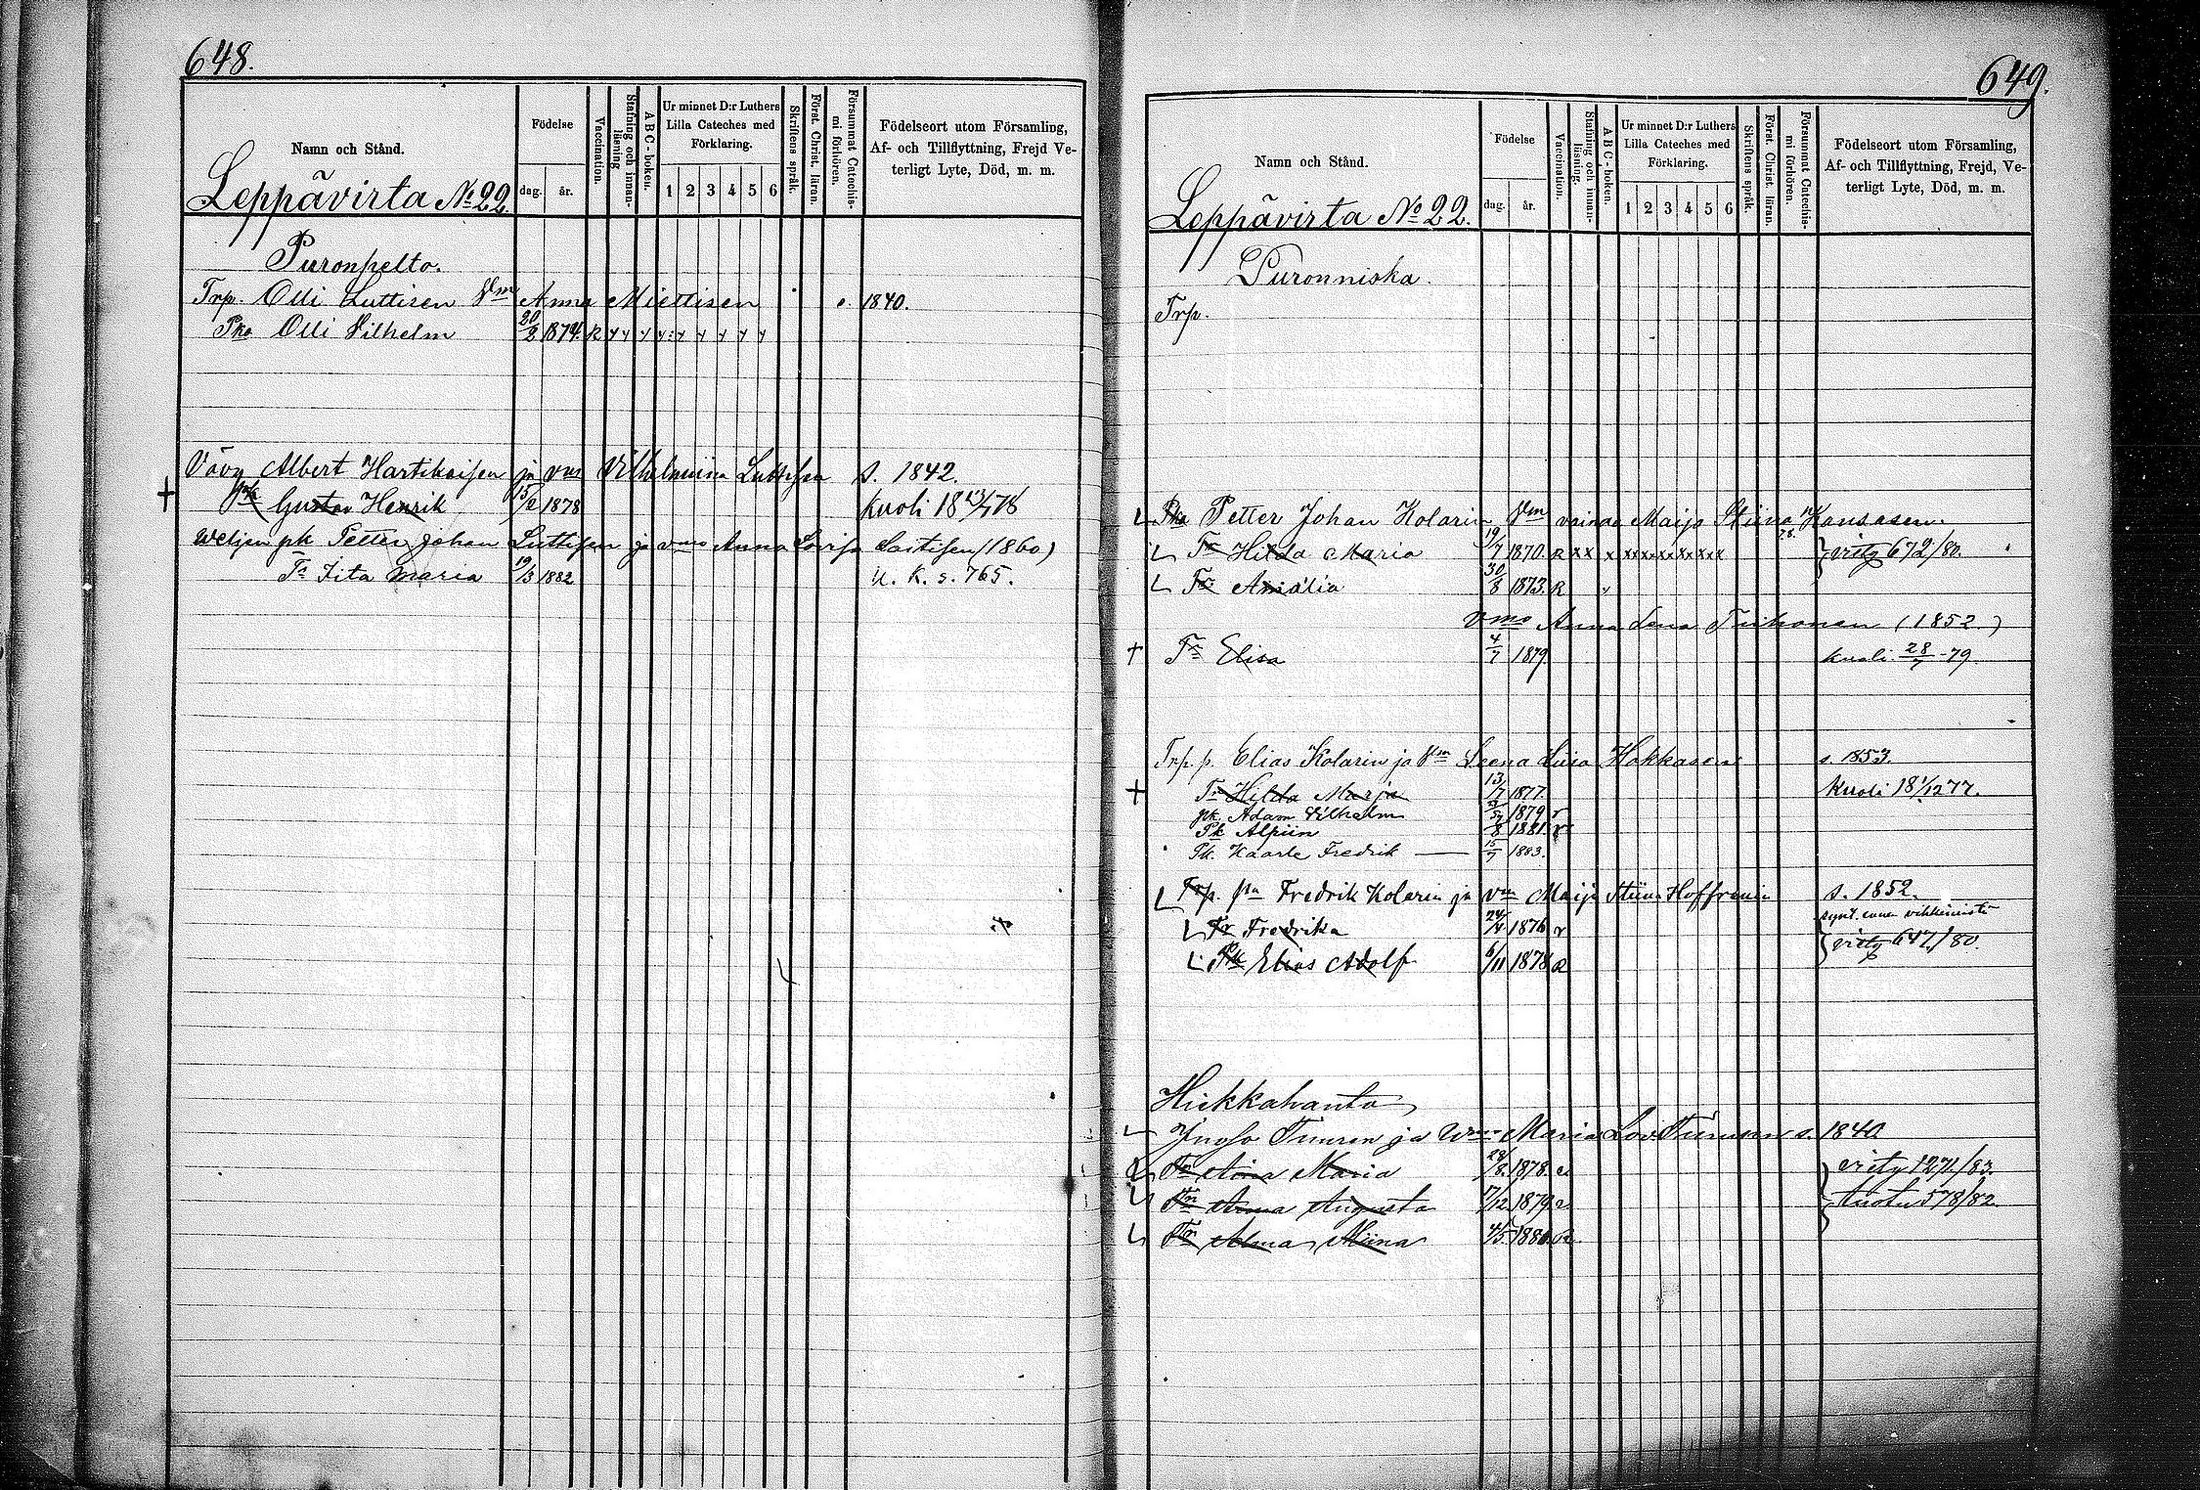 648.
Namn och Stånd.
Födelse
dag.
år.
Vaccination.
Stafning och innan-läsning
A B C - boken.
Ur minnet D:r Luthers
Lilla Cateches med
Förklaring.
1 2 3 4 5 6
Skriftens språk.
Först. Christ. läran.
Försummat Catechis-mi förhören.
Födelseort utom Församling,
Af- och Tillflyttning, Frejd Ve-
terligt Lyte, Död, m. m.
Leppävirta No 22.
Puronpelto.
Trp. Olli Luttisen Vm Anna Miettisen s. 1840.
Pka Olli Vilhelm 20/2 1874. R
Vävy Albert Hartikaisen ja vm Vilhelmiina Luttisen s. 1842.
+ Gustav Henrik 15/2 1878 kuoli 18 13/7 78
Weljen pk Petter Johan Luttisen ja vmo Anna Lovisa (1860)
Tr Iita Maria 19/3 1882 U. K. s. 765.
649.
Namn och Stånd.
Födelse
dag.
år.
Vaccination.
Stafning och innan-läsning.
A B C - boken.
Ur minnet D:r Luthers
Lilla Cateches med
Förklaring.
1 2 3 4 5 6
Skriftens språk.
Först. Christ. läran.
Försummat Catechis-mi förhören.
Födelseort utom Församling,
Af- och Tillflyttning, Frejd, Ve-
terligt Lyte, Död, m. m.
Leppävirta No 22.
Puronniska.
Trp.
Pka Petter Johan Kolarin Vm vainaa Maija Stiina Kansasen.
Tr Hilda Maria 19/7 1870. R xx x xxxxxxxx 672/80.
Tr Amalia 30/8 1873. R
Vmo Anna Lena Tiihonen (1852)
+ Tr Elisa 4/7 1879 kuoli 28/7 -79.
Trp. p. Elias Kolarin ja Vm Leena Liisa Hakkasen s. 1853.
+ Tr Hilda Marja 13/7 1877. Kuoli 18 1/12 77.
pk. Adam Vilhelm 1879 r
Pk Alpiin 1881. r
Pk. Kaarle Fredrik — 15/7 1883.
Trp. pn Fredrik Kolarin ja vm Maija Stiina Hoffrenin s. 1852.
Tr Fredrika 1876 r synt. ennen vihkimistä
Pk Elias Adolf 6/11 1878 R 647/80.
Hiekkahanta
Maria Lov. Turunen s. 1840
Tr Maria 1878. 1271/83.
Tr Anna Augusta 17/12 1879 578/82.
Tr Alma Miina 4/5